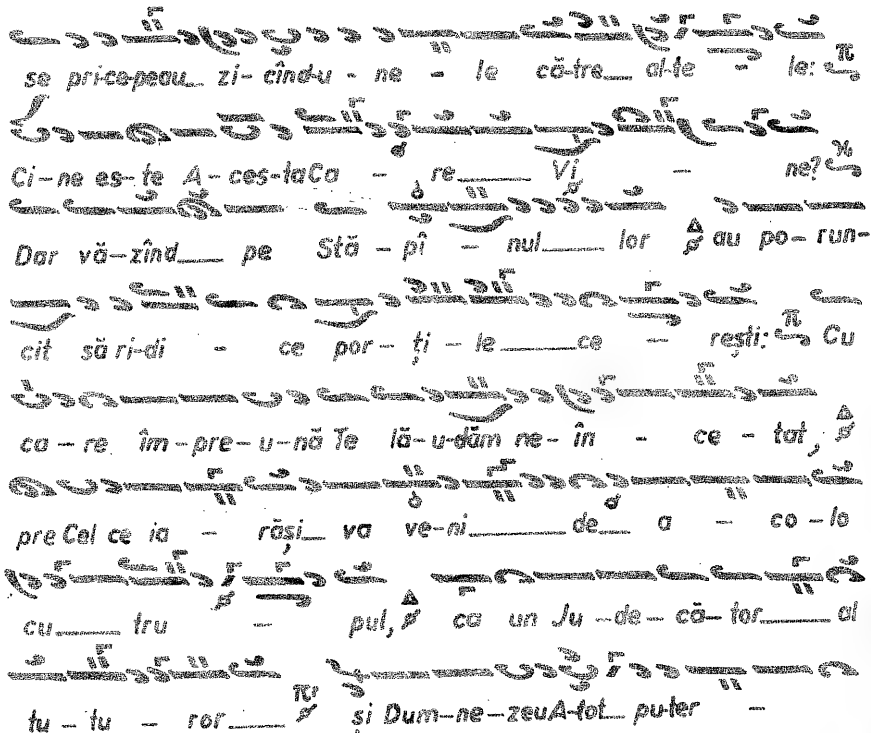 se pri-ce-peau__ zi-cînd-u - ne - le că-tre__ al-te - le:
Ci-ne es-te A-ces-ta Ca - re____ Vi - ne?
Dar vă-zînd____ pe Stă-pî - nul____ lor au po-run-
cit să ri-di - ce por-ți-le______ce - rești: Cu
ca-re îm-pre-u-nă Te lă-u-dăm ne-în - ce-tat,
pre Cel ce ia - răși__ va ve-ni______de__ a - co-lo
cu____ tru - pul, ca un Ju-de-că-tor____ al
tu-tu - ror____ și Dum-ne-zeu A-tot__ pu-ter -